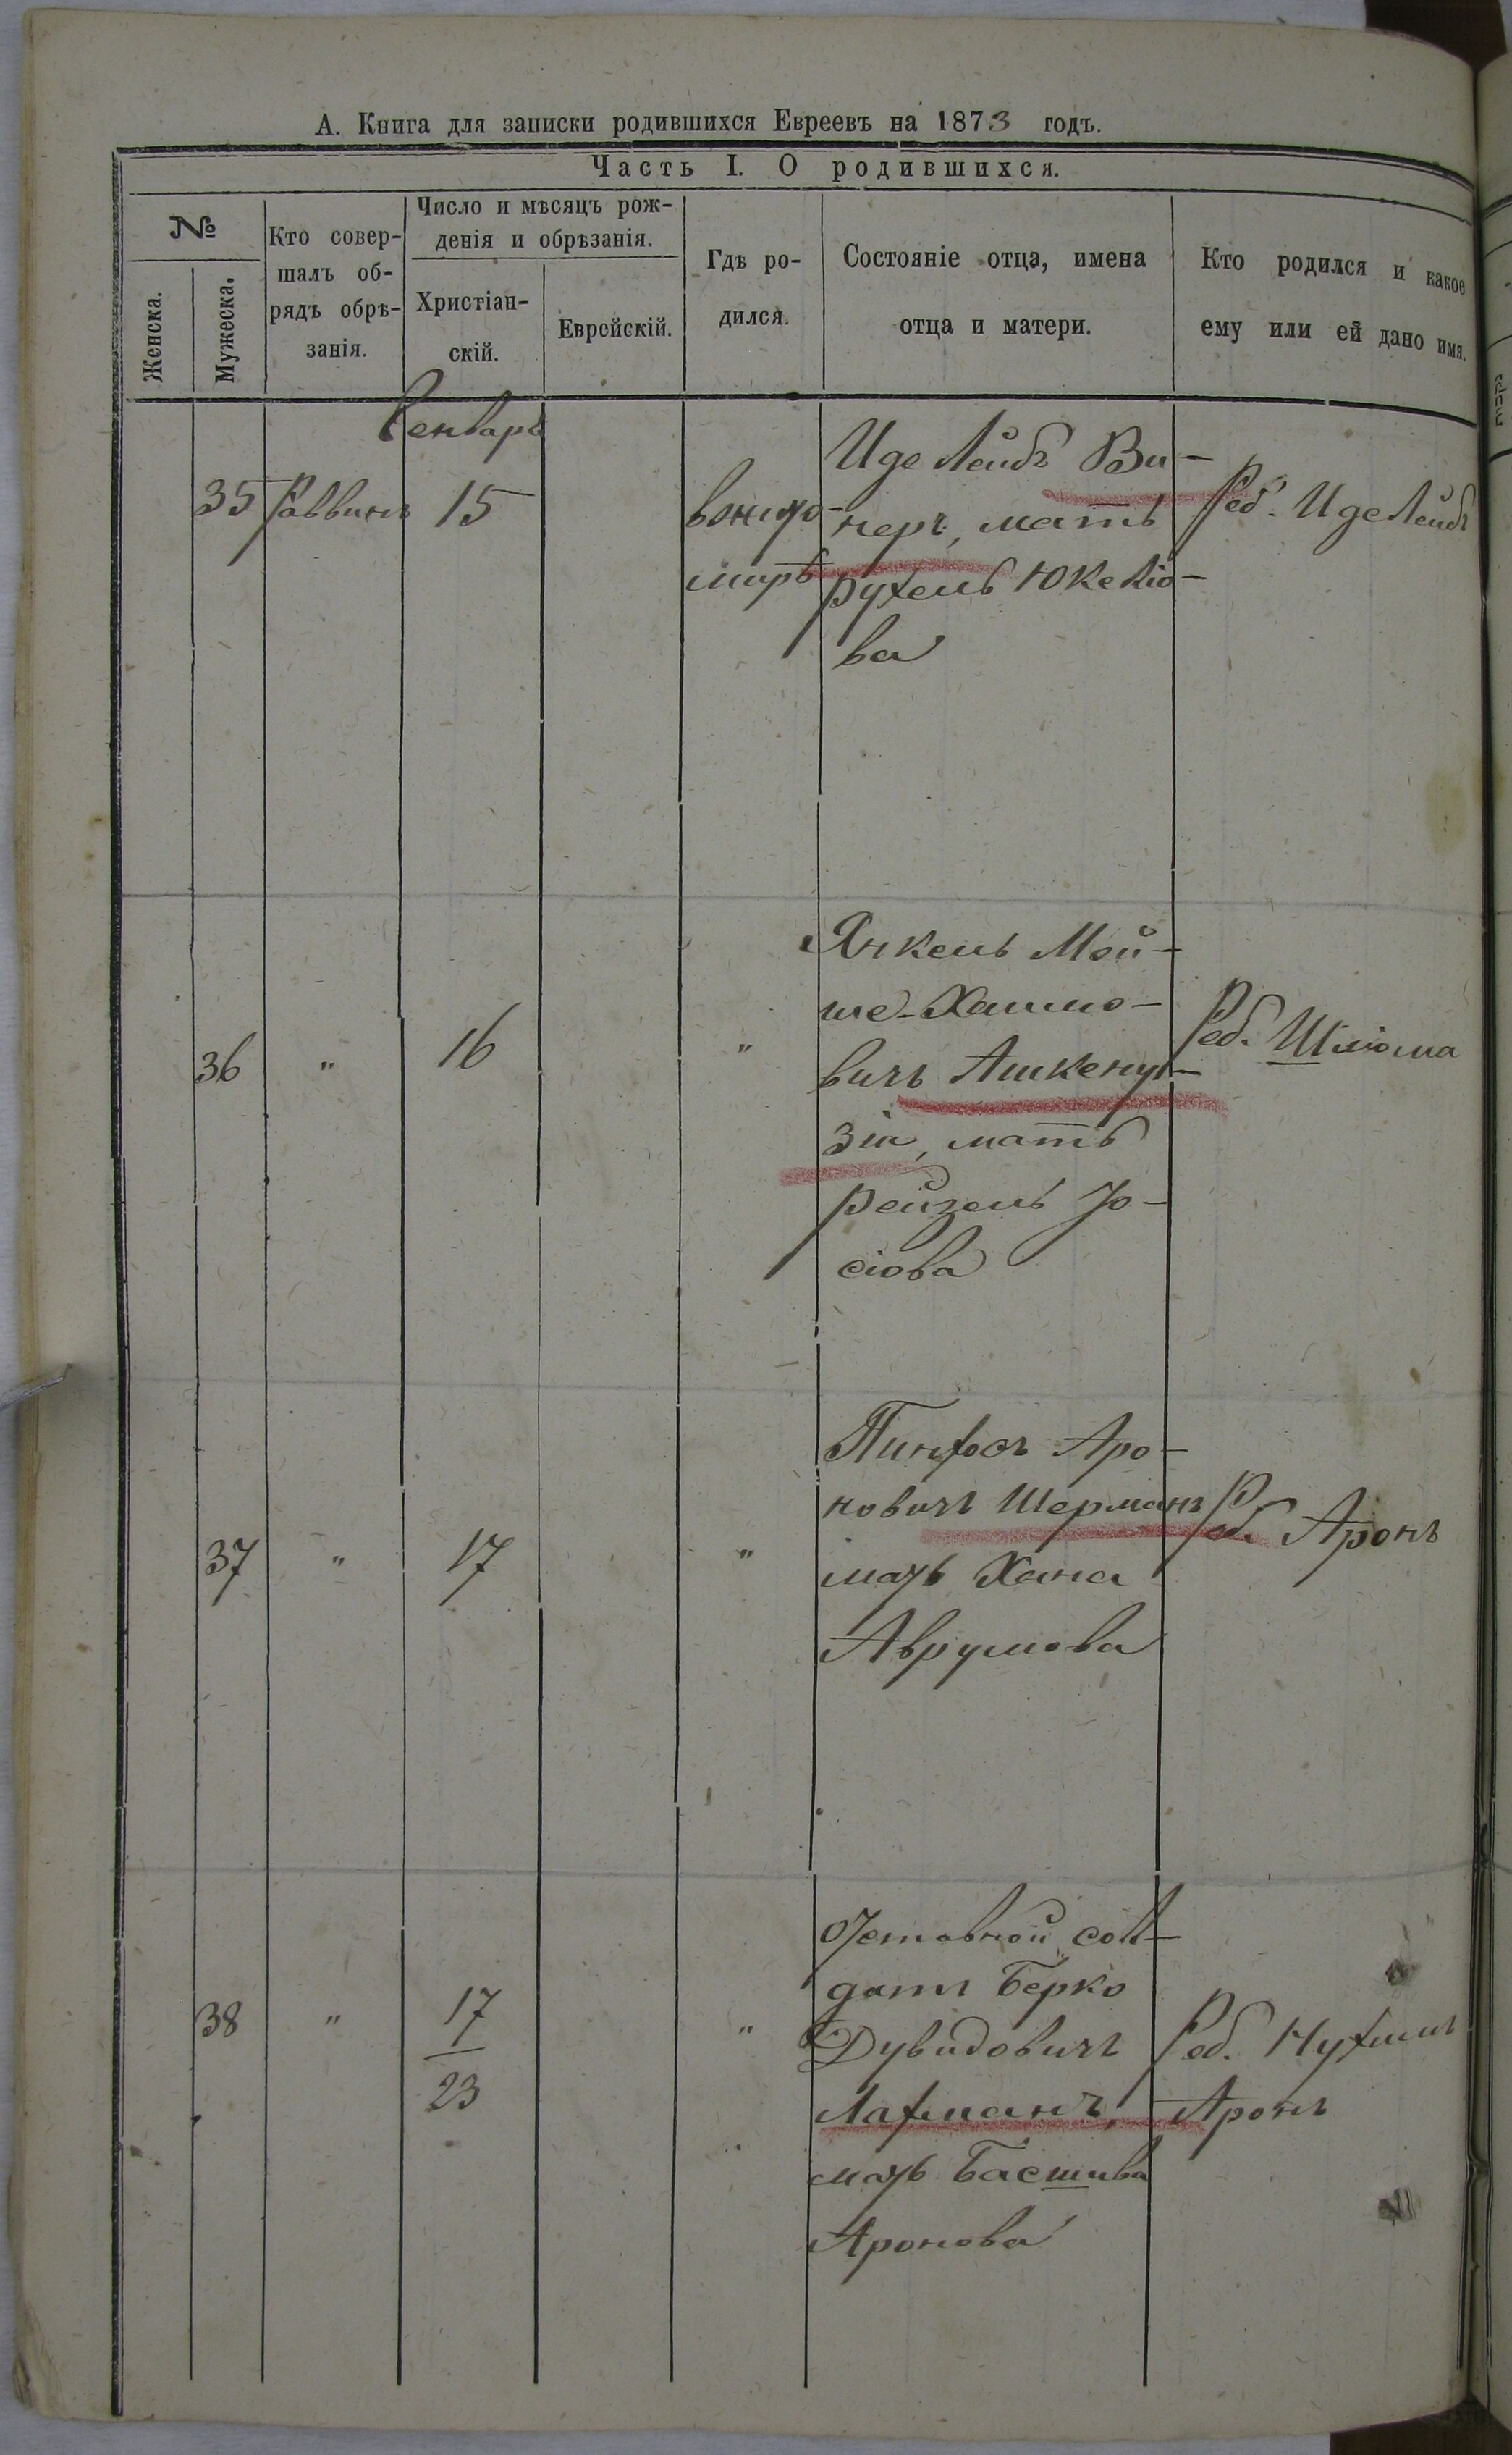 А. Книга для записки родившихся Евреевъ на 1873 годъ.
Часть I. О родившихся.
№
Женска.
Мужеска.
Кто совер-
шалъ об-
рядъ обрѣ-
занія.
Число и мѣсяцъ рож-
денія и обрѣзанія.
Христіан-
скій.
Еврейскій.
Гдѣ ро-
дился.
Состояніе отца, имена
отца и матери.
Кто родился и какое
ему или ей дано имя.
Генварь
35 Раввинъ 15
вжито-
мирѣ
Иде Лейбъ Ви-
неръ, мать
Рухель Юкелiо-
ва
Реб. Иде Лейбъ
36 " 16 "
Янкель Мой-
ше-Хаимо-
вичъ Ашкену-
зiи, мать
Рейзель Іо-
сіова
Реб. Шліома
37 " 17 "
Пинхосъ Аро-
новичъ Шерманъ
мать Хана
Аврумова
Реб. Аронъ
38 " 17
23 "
Отставной сол-
датъ Берко
Дувидовичъ
Лахманъ,
мать Басшива
Аронова
Реб. Нухимъ
Аронъ